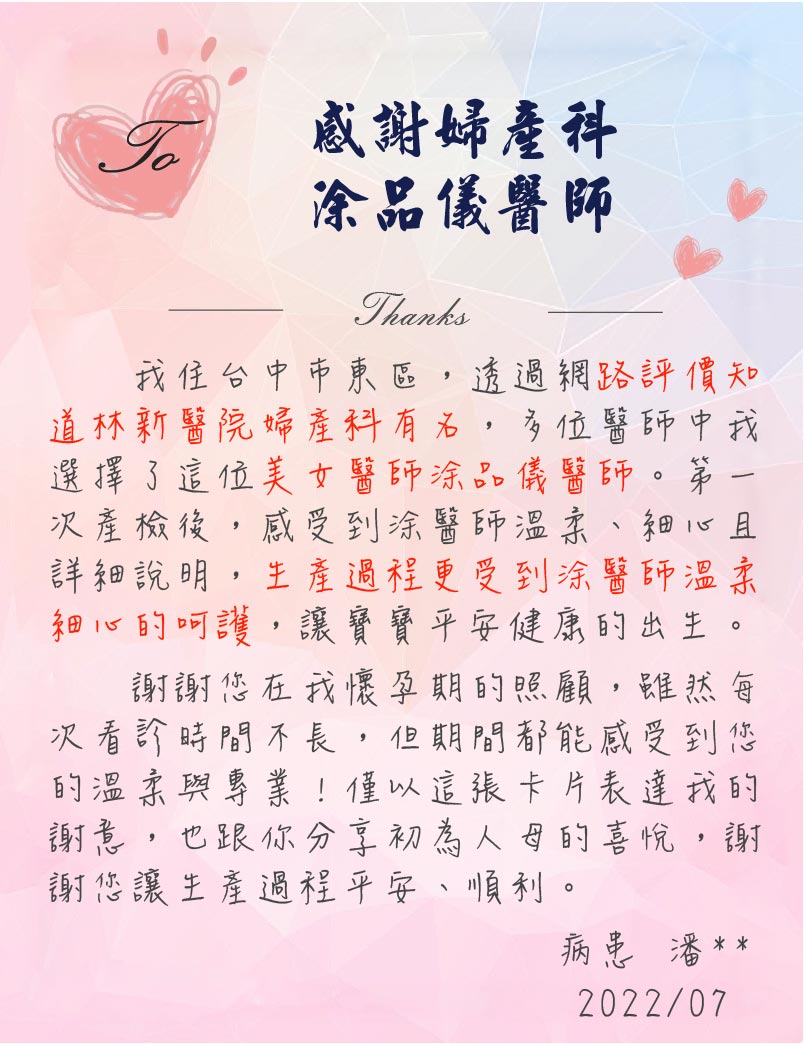 To
感謝婦產科
涂品儀醫師
Thanks
我住台中市東區，透過網路評價知
道林新醫院婦產科有名，多位醫師中我
選擇了這位美女醫師涂品儀醫師。第一
次產檢後，感受到涂醫師溫柔、細心且
詳細說明，生產過程更受到涂醫師溫柔
細心的呵護，讓寶寶平安健康的出生。
謝謝您在我懷孕期的照顧，雖然每
次看診時間不長，但期間都能感受到您
的溫柔與專業！僅以這張卡片表達我的
謝意，也跟你分享初為人母的喜悅，謝
謝您讓生產過程平安、順利。
病患 潘**
2022/07